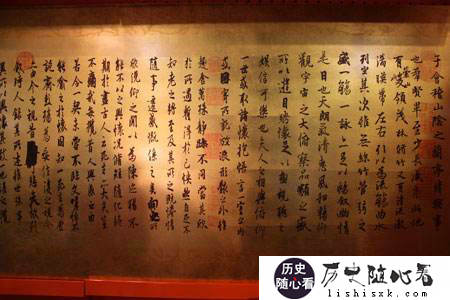 于會稽山陰之蘭亭脩稧事
也群賢畢至少長咸集此地
有峻領茂林脩竹又有清流激
湍暎帶左右引以為流觴曲水
列坐其次雖無絲竹管弦之
盛一觴一詠亦足以暢敘幽情
是日也天朗氣清惠風和暢仰
觀宇宙之大俯察品類之盛
所以遊目騁懷足以極視聽之
娛信可樂也夫人之相與俯仰
一世或取諸懷抱悟言一室之內
或因寄所託放浪形骸之外雖
趣舍萬殊靜躁不同當其欣
於所遇蹔得於己怏然自足不
知老之將至及其所之既惓情
隨事遷感慨係之矣向之所
欣俛仰之閒以為陳迹猶不
能不以之興懷況脩短隨化終
期於盡古人云死生亦大矣豈
不痛哉每攬昔人興感之由
若合一契未嘗不臨文嗟悼不
能喻之於懷固知一死生為虛
誕齊彭殤為妄作後之視今
亦由今之視昔悲夫故列
敘時人錄其所述雖世殊事
異所以興懷其致一也後之
历史
随心看
历史随心看
lishisxk.com